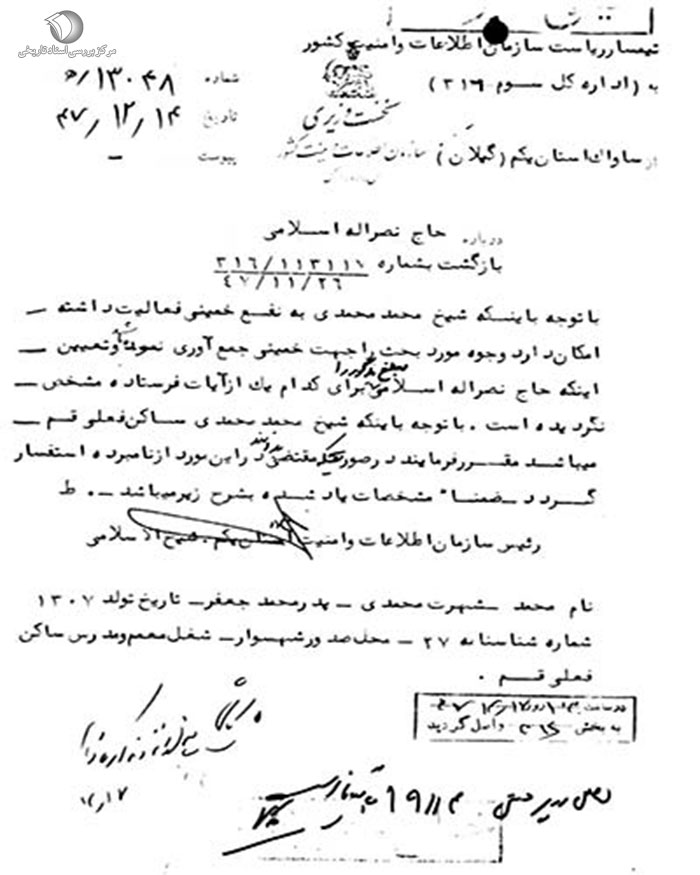 مرکز بررسی اسناد تاریخی
تیمسار ریاست سازمان اطلاعات و امنیت کشور
به (اداره کل سوم ۳۱۶)
از ساواک استان یکم (گیلان)
نخست وزیری
سازمان اطلاعات و امنیت کشور
شماره ۱۳۰۴۸/ه
تاریخ ۴۷/۱۲/۱۴
پیوست –
درباره حاج نصراله اسلامی
بازگشت بشماره ۳۱۶/۱۱۳۱۱۷
۴۷/۱۱/۲۶
با توجه باینکه شیخ محمد محمدی به نفع خمینی فعالیت داشته –
امکان دارد وجوه مورد بحث را جهت خمینی جمع آوری نموده و تعیین –
اینکه حاج نصراله اسلامی مبلغ مذکور را برای کدام یك از آیات فرستاده مشخص –
نگردیده است . با توجه باینکه شیخ محمد محمدی ساکن فعلی قم –
میباشد مقرر فرمایند در صورتیکه مقتضی بدانند در این مورد از نامبرده استفسار
گردد – ضمنا" مشخصات یاد شده بشرح زیر میباشد –. ط
رئیس سازمان اطلاعات و امنیت استان یکم . شیخ الاسلامی
نام محمد – شهرت محمدی – پدر محمد جعفر – تاریخ تولد ۱۳۰۷
شماره شناسنامه ۲۷ – محل صدور شهسوار – شغل معمم و مدرس ساکن
فعلی قم .
در ساعت روز
به بخش ۳۱۶ واصل گردید
۱۲/۱۷
اصل در پرونده